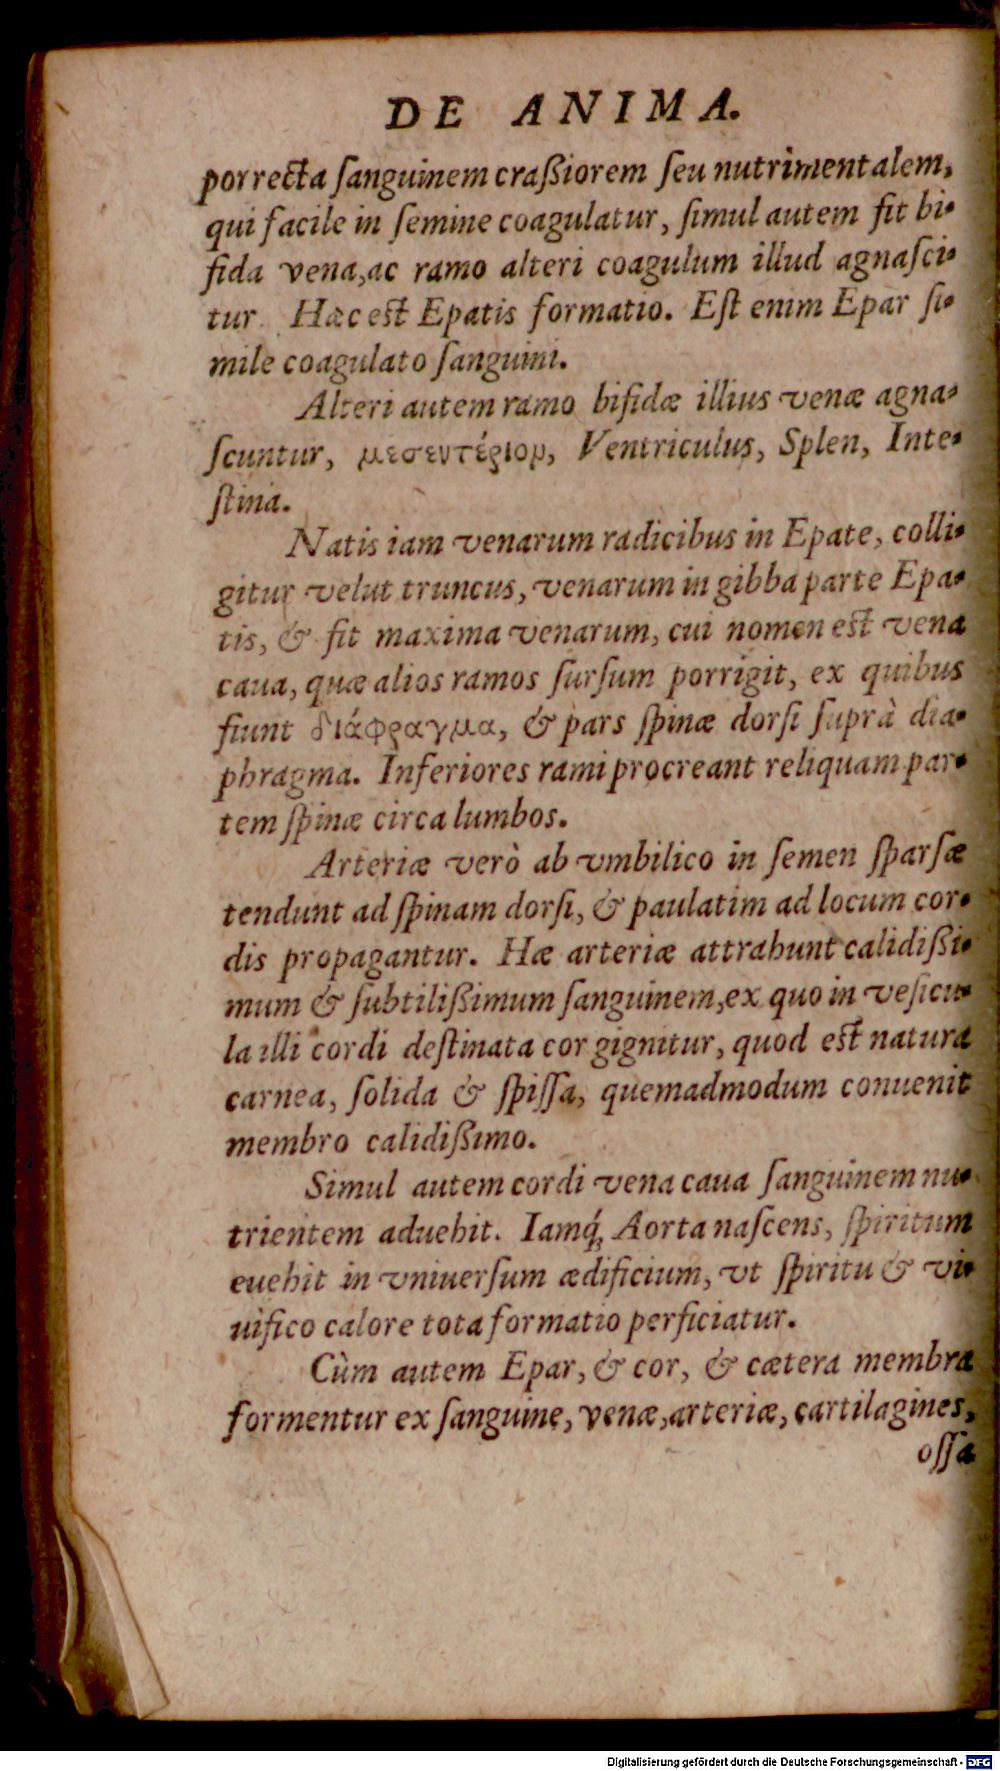 DE ANIMA.
porrecta ſanguinem craßiorem ſeu nutrimentalem,
qui facile in ſemine coagulatur, ſimul autem fit bi-
fida vena, ac ramo alteri coagulum illud agnaſci-
tur. Hæc eſt Epatis formatio. Eſt enim Epar ſi-
mile coagulato ſanguini.
Alteri autem ramo bifidæ illius venæ agna-
ſcuntur, μεσεντέριον, Ventriculus, Splen, Inte-
ſtina.
Natis iam venarum radicibus in Epate, colli-
gitur velut truncus, venarum in gibba parte Epa-
tis, & fit maxima venarum, cui nomen eſt vena
caua, quæ alios ramos ſurſum porrigit, ex quibus
fiunt διάφραγμα, & pars ſpinæ dorſi ſuprà dia-
phragma. Inferiores rami procreant reliquam par-
tem ſpinæ circa lumbos.
Arteriæ verò ab vmbilico in ſemen ſparſæ
tendunt ad ſpinam dorſi, & paulatim ad locum cor-
dis propagantur. Hæ arteriæ attrahunt calidißi-
mum & ſubtilißimum ſanguinem, ex quo in veſicu-
la illi cordi deſtinata cor gignitur, quod eſt natura
carnea, ſolida & ſpiſſa, quemadmodum conuenit
membro calidißimo.
Simul autem cordi vena caua ſanguinem nu-
trientem aduehit. Iamq́; Aorta naſcens, ſpiritum
euehit in vniuerſum ædificium, vt ſpiritu & vi-
uifico calore tota formatio perficiatur.
Cùm autem Epar, & cor, & cætera membra
formentur ex ſanguine, venæ, arteriæ, cartilagines,
oſſa
Digitalisierung gefördert durch die Deutsche Forschungsgemeinschaft - DFG